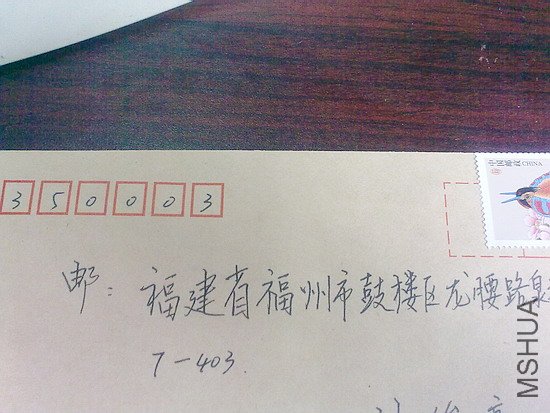 中国邮政 CHINA
350003
邮：福建省福州市鼓楼区龙腰路泉
7-403.
MSHUA